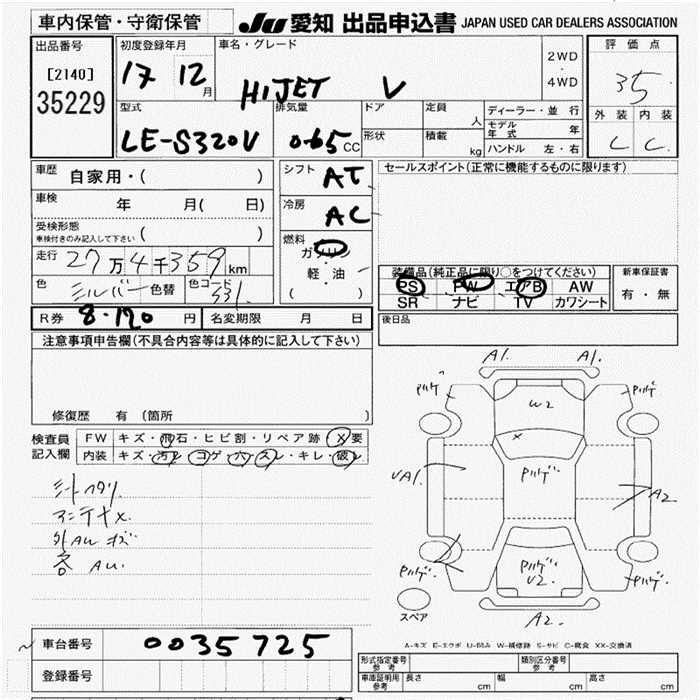 車内保管・守衛保管 JU 愛知 出品申込書 JAPAN USED CAR DEALERS ASSOCIATION
出品番号 初度登録年月 車名・グレード 2WD ・ 4WD 評価点
[2140]
35229
17 12月 HIJET V 35
型式 排気量 ドア 定員 人 ディーラー・並行 外装 内装
モデル年式 年
LE-S320V 0.65 CC 形状 積載 kg ハンドル 左・右 C C
車歴 自家用・( ) シフト AT セールスポイント(正常に機能するものに限ります)
車検 年 月( 日) 冷房 AC
受検形態
車検付きのみ記入して下さい ( ) 燃料 ガソリン
走行 27万4千359km 軽・油 装備品(純正品に限り○をつけてください) 新車保証書
色 シルバー 色替 色コード S31. ( ) PS PW エアB AW 有・無
SR ナビ TV カワシート
R券 8.120 円 名変期限 月 日 後日品
注意事項申告欄(不具合内容等は具体的に記入して下さい)
修復歴 有 (箇所 )
検査員記入欄 FW キズ・飛石・ヒビ割・リペア跡・X要
内装 キズ・汚レ・コゲ・穴・スレ・キレ・破レ
アンテナX.
外AUキズ
AU.
A1. A1.
W2
X
A2
U2.
A2.
スペア
A-キズ E-エクボ U-凹み W-補修跡 S-サビ C-腐食 XX-交換済
車台番号 0035725
登録番号
形式指定番号 参考 類別区分番号 参考
車庫証明用 参考 長さ cm 幅 cm 高さ cm